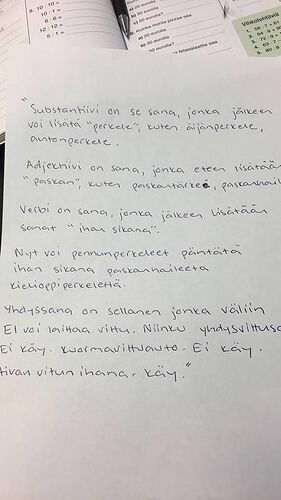 5. 10 · 10 =
10 · 1 =
8 · 6 =
12 · 12 =
5 : 1 =
a) 20 eurolla
b) 30 eurolla
a) 20 eurolla
b) 30 eurolla
c) 50 eurolla?
Vihkotehtäviä
"
Substantiivi on se sana, jonka jälkeen
voi lisätä "perkele", kuten äijänperkele,
autonperkele.
Adjektiivi on sana, jonka eteen lisätään
"paskan", kuten paskantärkeä, paskanhail
Verbi on sana, jonka jälkeen lisätään
sanat "ihan sikana".
Nyt voi pennunperkeleet päntätä
ihan sikana paskanhaileeta
kielioppiperkelettä.
Yhdyssana on sellanen jonka väliin
EI voi laittaa vittu. Niinku yhdysvittusa
Ei käy. Kuormavittuauto. Ei käy.
Aivan vitun ihana. Käy."